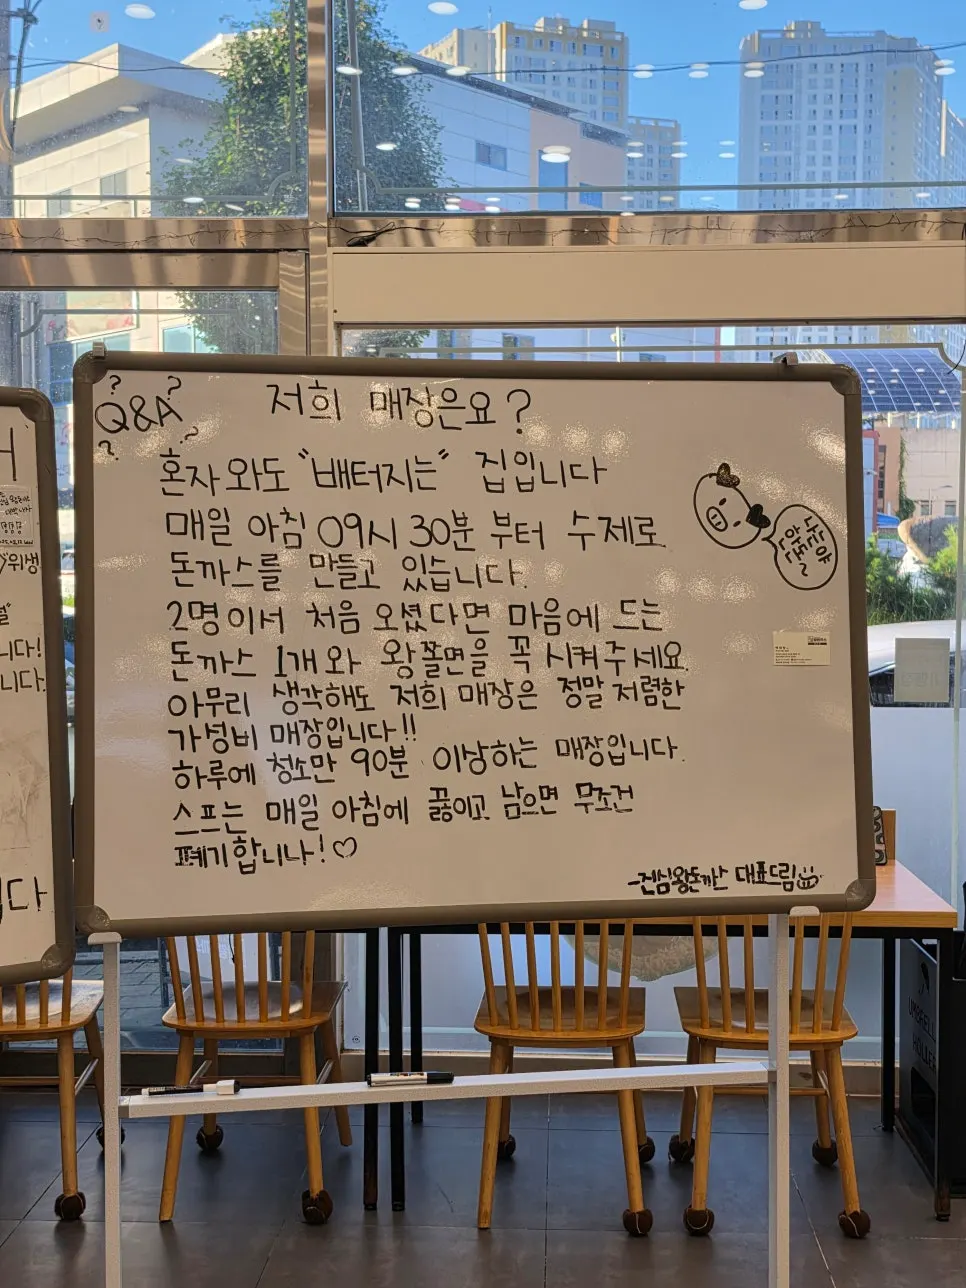 Q&A
저희 매장은요?
혼자와도 "배터지는" 집입니다
매일 아침 09시 30분 부터 수제로
돈까스를 만들고 있습니다.
2명이서 처음 오셨다면 마음에 드는
돈까스 1개와 왕쫄면을 꼭 시켜주세요.
아무리 생각해도 저희 매장은 정말 저렴한
가성비 매장입니다!!
하루에 청소만 90분 이상하는 매장입니다.
스프는 매일 아침에 끓이고 남으면 무조건
폐기합니다!♡
-진심왕돈까스 대표드림
나는야
한돈~
위생
니다!
니다.